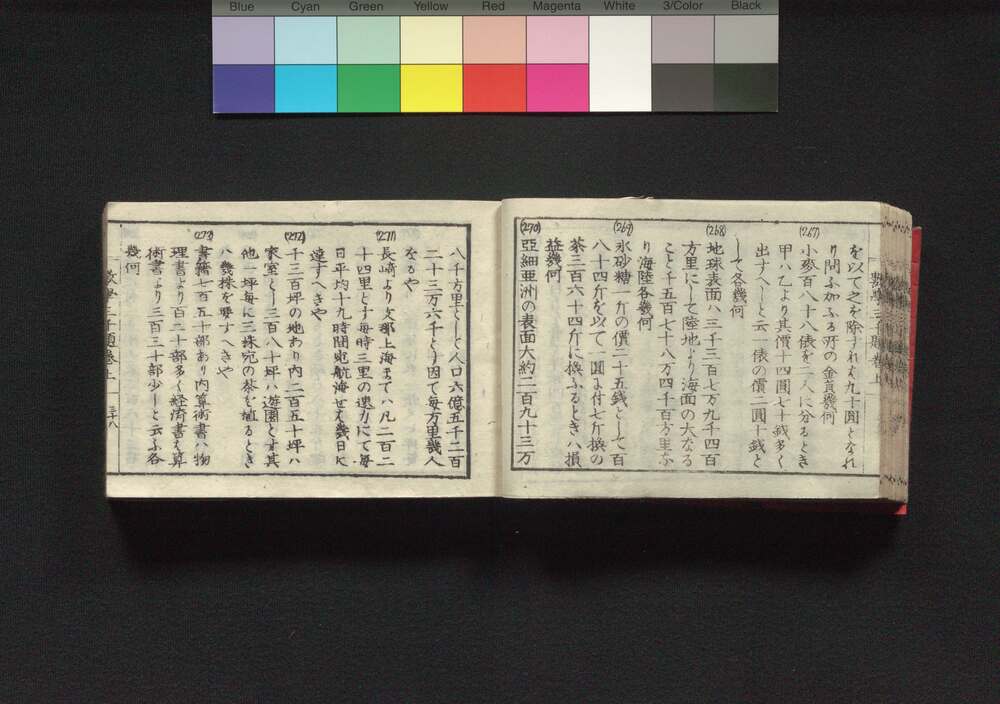 Blue Cyan Green Yellow Red Magenta White 3/Color Black
を以て之を除すれは九十圓となれ
り問ふ加ふる所の金員幾何
(267)
小麥百八十八俵を二人に分るとき
甲ハ乙より其價十四圓七十錢多く
出すへしと云一俵の價二圓十錢と
して各幾何
(268)
地球表面ハ三千三百七万九千四百
方里にして陸地より海面の大なる
こと千五百七十八万四千百方里な
り海陸各幾何
(269)
氷砂糖一斤の價二十五錢として百
八十四斤を以て一圓に付七斤換の
茶三百六十四斤に換ふるときハ損
益幾何
(270)
亞細亜洲の表面大約二百九十三万
八千方里として人口六億五千二百
二十三万六千とす因て每方里幾人
なるや
(271)
長崎より支那上海まてハ凡二百二
十四里とす每時三里の速力にて每
日平均十九時間宛航海せは幾日に
達すへきや
(272)
千三百坪の地あり内二百五十坪ハ
家室とし三百八十坪ハ遊園とす其
他一坪每に三株宛の茶を植るとき
ハ幾株を要すへきや
(273)
書籍七百五十部あり内算術書ハ物
理書より百二十部多く経済書は算
術書より三百三十部少しと云ふ各
幾何
數學三千題卷上 三十八